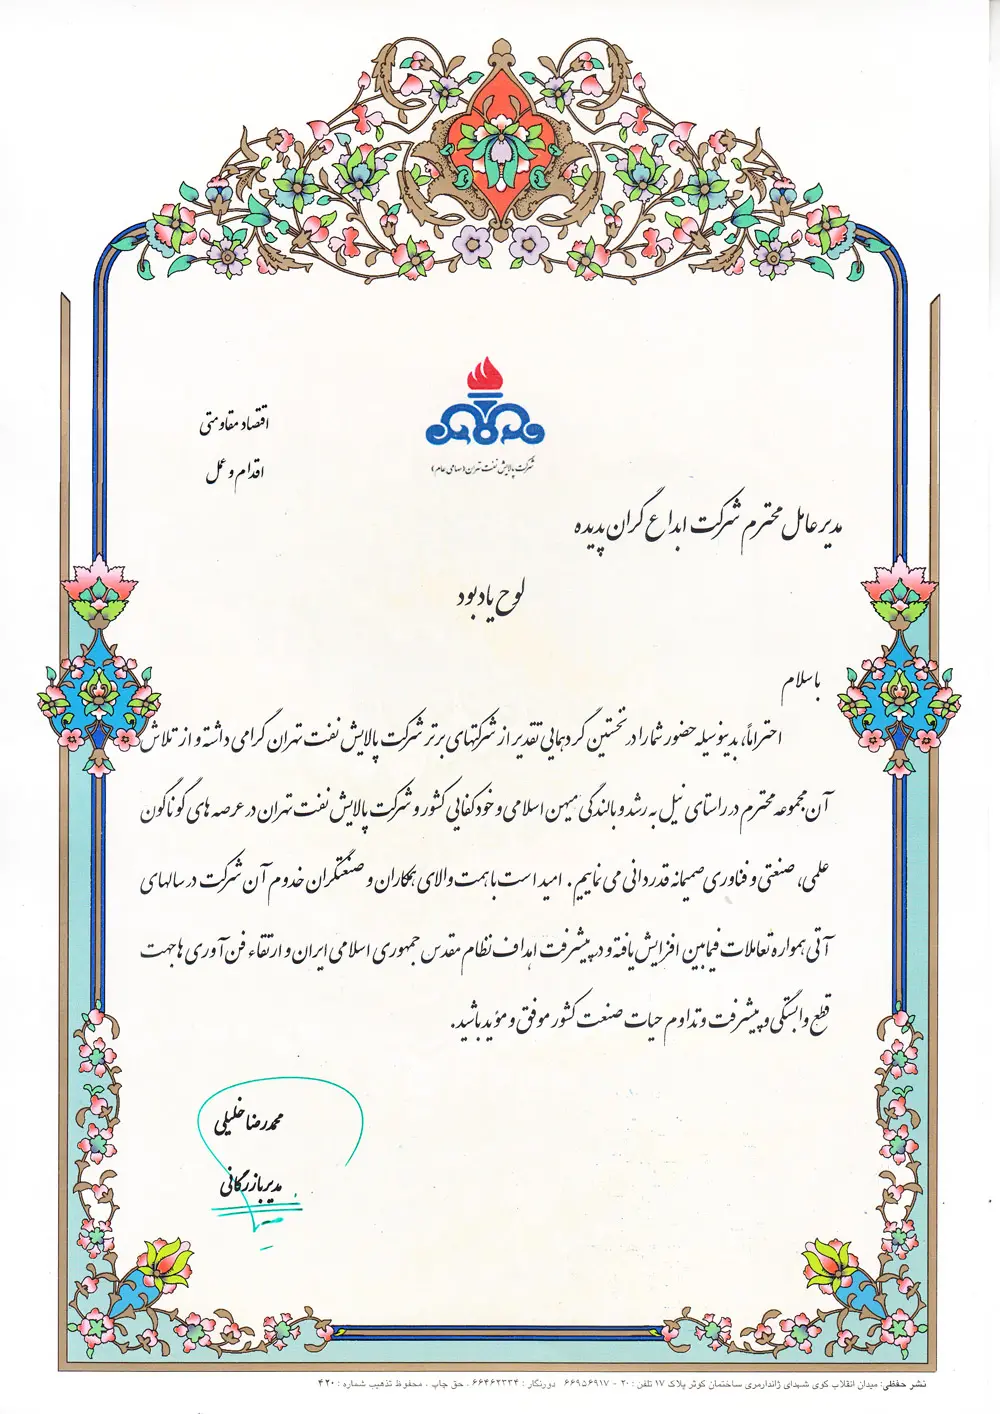 اقتصاد مقاومتی
اقدام و عمل
شرکت پالایش نفت تهران (سهامی عام)
مدیر عامل محترم شرکت ابداع گران پدیده
لوح یادبود
باسلام
احتراماً، بدینوسیله حضور شما را در نخستین گردهمایی تقدیر از شرکتهای برتر شرکت پالایش نفت تهران گرامی داشته و از تلاش
آن مجموعه محترم در راستای نیل به رشد و بالندگی میهن اسلامی و خودکفایی کشور و شرکت پالایش نفت تهران در عرصه های گوناگون
علمی، صنعتی و فناوری صمیمانه قدردانی می نماییم. امید است با همت والای همکاران و صنعتگران خدوم آن شرکت در سالهای
آتی همواره تعاملات فیمابین افزایش یافته و در پیشرفت اهداف نظام مقدس جمهوری اسلامی ایران و ارتقاء فن آوری ها جهت
قطع وابستگی و پیشرفت و تداوم حیات صنعت کشور موفق و مؤید باشید.
محمدرضا خلیلی
مدیر بازرگانی
نشر حفظی: میدان انقلاب کوی شهدای ژاندارمری ساختمان کوثر پلاک ۱۷ تلفن : ۲۰ - ۶۶۹۵۶۹۱۷ دورنگار : ۶۶۴۶۲۳۳۴ . حق چاپ . محفوظ تذهیب شماره : ۴۲۰